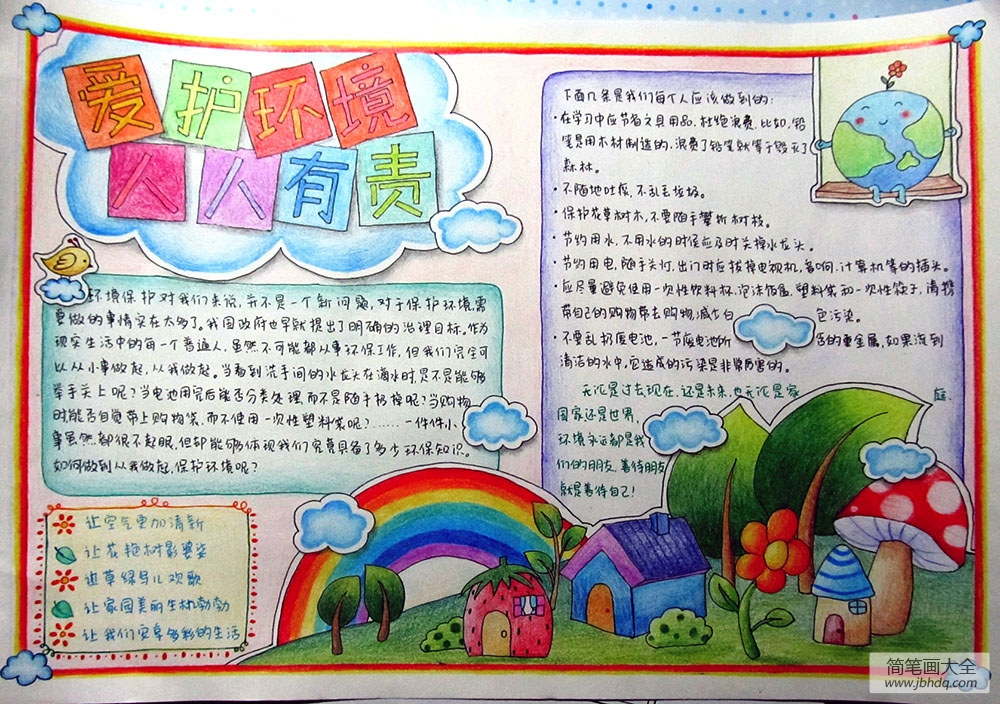 爱护环境
人人有责
环境保护对我们来说,并不是一个新问题,对于保护环境,需
要做的事情实在太多了。我国政府也早就提出了明确的治理目标。作为
现实生活中的每一个普通人,虽然不可能都从事环保工作,但我们完全可
以从小事做起,从我做起。当看到洗手间的水龙头在滴水时,是不是能够
举手关上呢?当电池用完后能否分类处理,而不是随手扔掉呢?当购物
时,能否自觉带上购物袋,而不使用一次性塑料袋呢?……一件件小
事虽然都很不起眼,但却能够体现我们究竟具备了多少环保知识。
如何做到从我做起,保护环境呢?
让空气更加清新
让花艳树影婆娑
让草绿鸟儿欢歌
让家园美丽生机勃勃
让我们安享多彩的生活
下面几条是我们每个人应该做到的:
·在学习中应节省文具用品,杜绝浪费,比如,铅
笔是用木材制造的,浪费了铅笔就等于毁灭了
森林。
·不随地吐痰,不乱丢垃圾。
·保护花草树木,不要随手攀折树枝。
·节约用水,不用水的时候应及时关掉水龙头。
·节约用电,随手关灯,出门时应拔掉电视机,音响,计算机等的插头。
·应尽量避免使用一次性饮料杯,泡沫饭盒,塑料袋和一次性筷子,请携
带自己的购物袋去购物,减少白色污染。
·不要乱扔废电池,一节废电池所含的重金属,如果流到
清洁的水中,它造成的污染是非常厉害的。
无论是过去,现在,还是未来,也无论是家庭、
国家还是世界,
环境永远都是我
们的朋友,善待朋友
就是善待自己!
简笔画大全
www.jbhdq.com